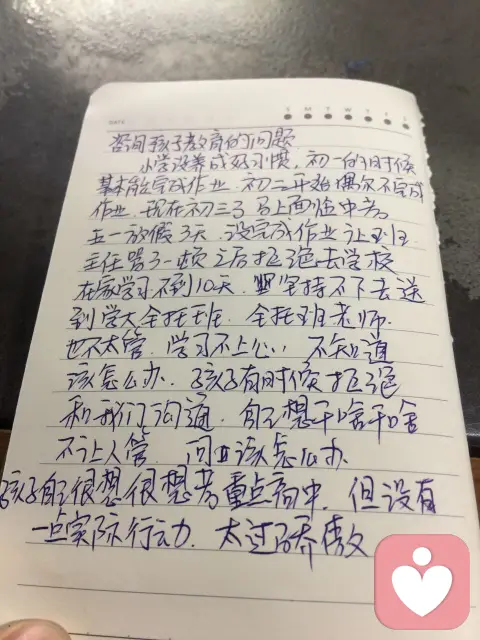 DATE S M T W T F S
咨询孩子教育的问题
小学没养成好习惯,初一的时候
基本能完成作业.初二开始偶尔不完成
作业.现在初三了马上面临中考.
五一放假3天.没完成作业让班
主任骂了一顿之后拒绝去学校
在家学习不到10天.坚持不下去送
到学大全托班.全托班老师.
也不太管.学习不上心,不知道
该怎么办.孩子有时候拒绝
和我们沟通.自己想干啥干啥
不让人管.问应该怎么办.
孩子自己很想很想考重点高中.但没有
一点实际行动.太过骄傲